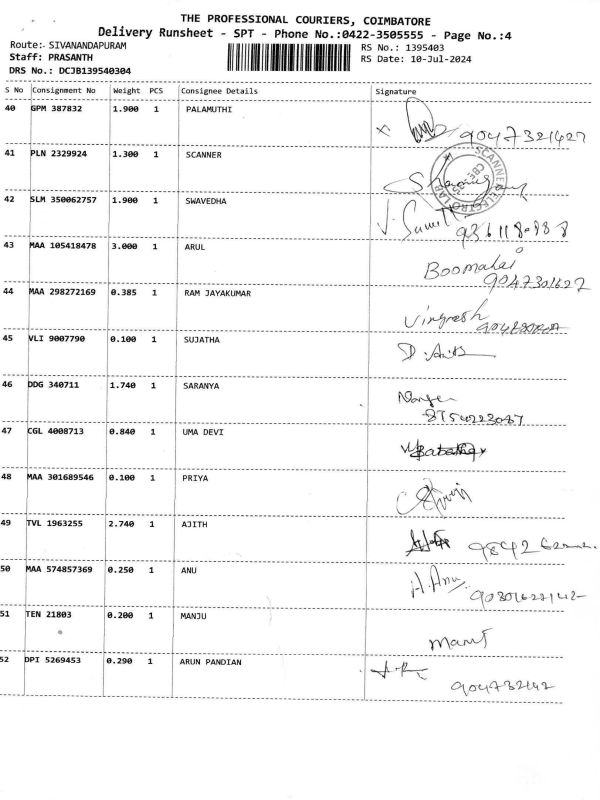 THE PROFESSIONAL COURIERS, COIMBATORE
Delivery Runsheet - SPT - Phone No.:0422-3505555 - Page No.:4
Route:- SIVANANDAPURAM RS No.: 1395403
Staff: PRASANTH RS Date: 10-Jul-2024
DRS No.: DCJB139540304
S No Consignment No Weight PCS Consignee Details Signature
40 GPM 387832 1.900 1 PALAMUTHI
9047321427
41 PLN 2329924 1.300 1 SCANNER
42 SLM 350062757 1.900 1 SWAVEDHA
43 MAA 105418478 3.000 1 ARUL
Boomalai
9047301622
44 MAA 298272169 0.385 1 RAM JAYAKUMAR
45 VLI 9007790 0.100 1 SUJATHA
46 DDG 340711 1.740 1 SARANYA
47 CGL 4008713 0.840 1 UMA DEVI
48 MAA 301689546 0.100 1 PRIYA
49 TVL 1963255 2.740 1 AJITH
50 MAA 574857369 0.250 1 ANU
A. Anu
51 TEN 21803 0.200 1 MANJU
52 DPI 5269453 0.290 1 ARUN PANDIAN
904732142